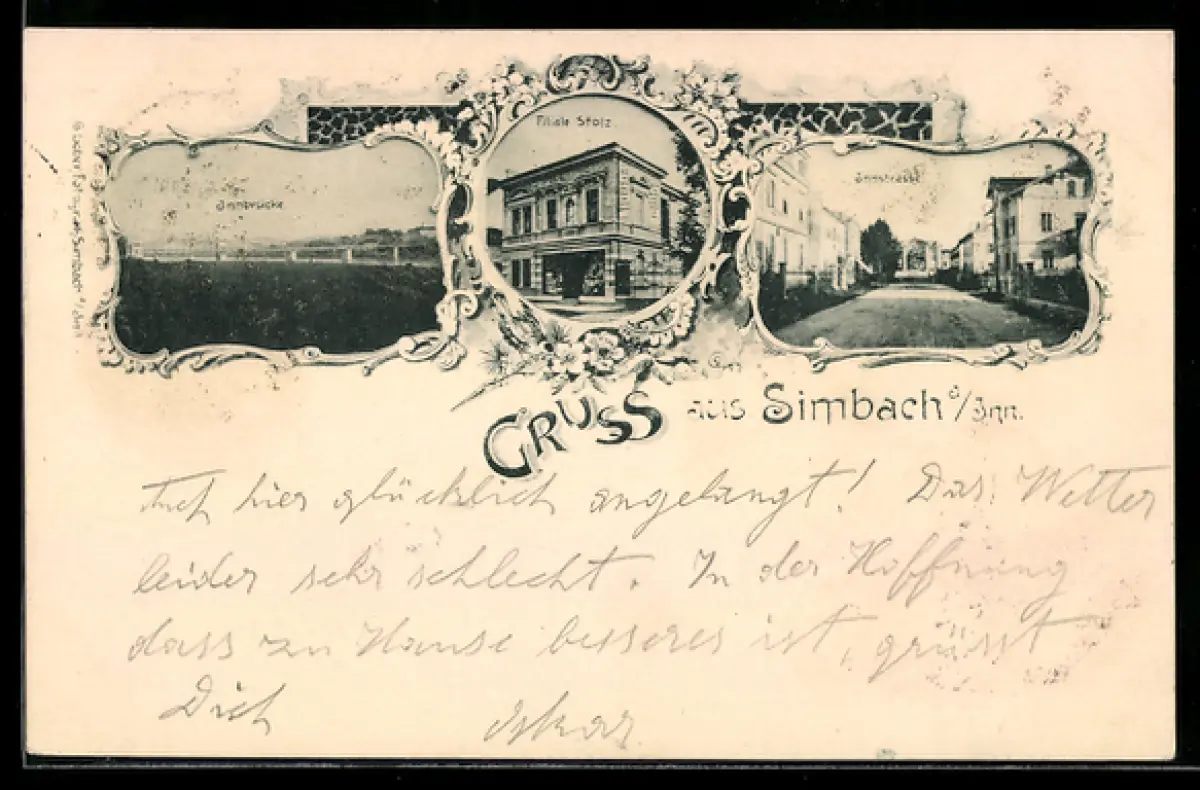 Innbrücke
Filiale Stolz.
Innstrasse
GRUSS aus Simbach a/Inn.
hier glücklich angelangt! Das Wetter
leider sehr schlecht. In der Hoffnung
dass zu Hause besseres ist, grüsst
Dich